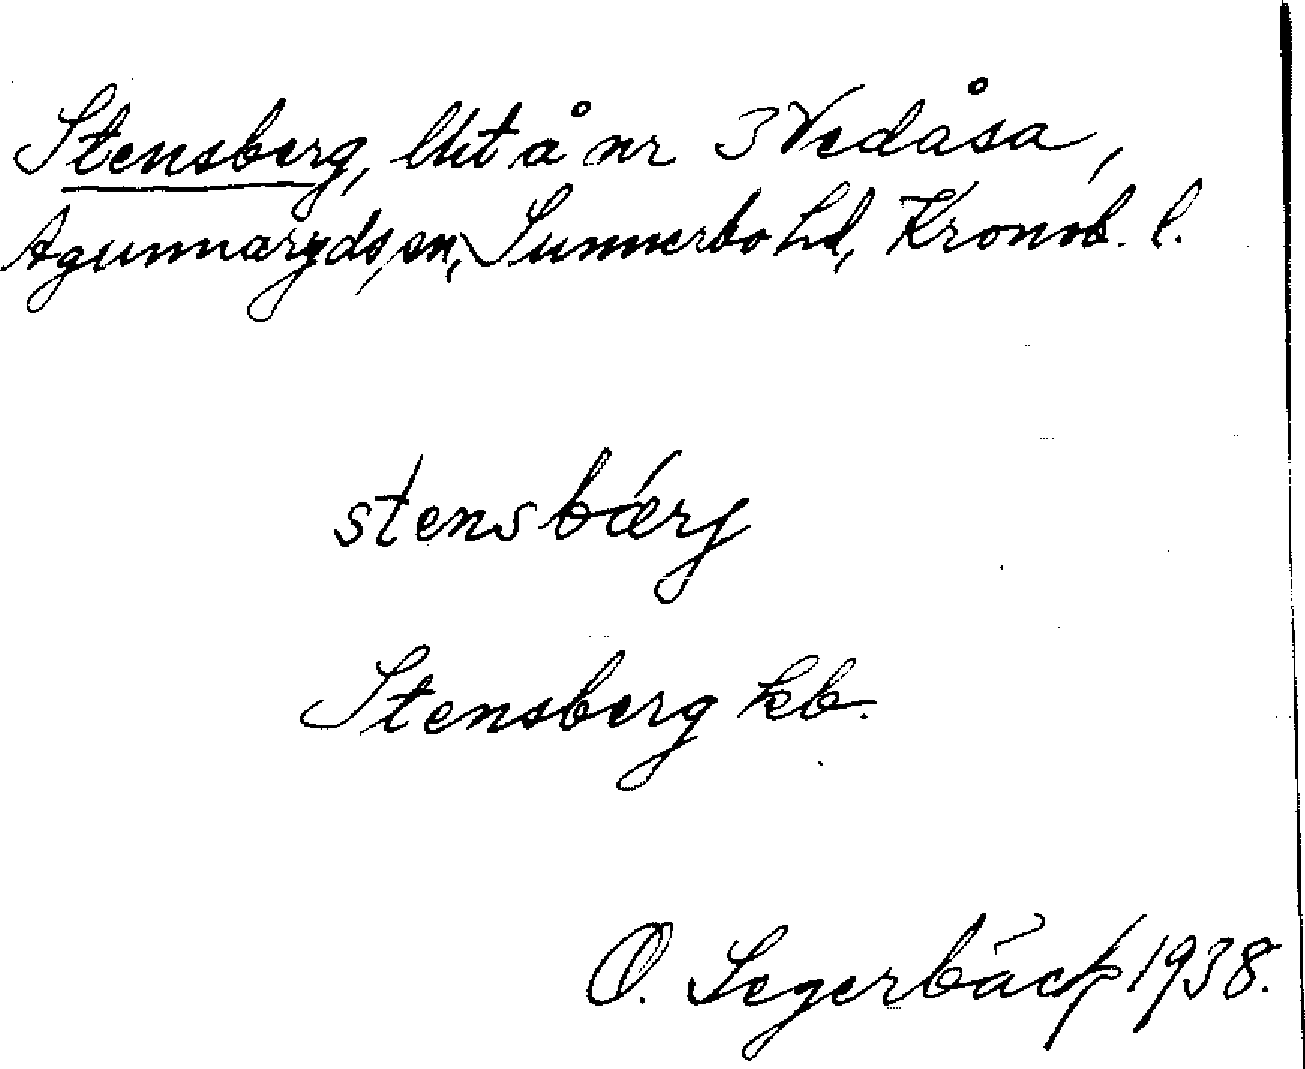 Stensberg, lht å nr 3 Vedåsa,
Agunnaryds sn, Sunnerbo hd, Kronob. l.
stensbärj
Stensberg kb.
O. Segerbäck 1938.